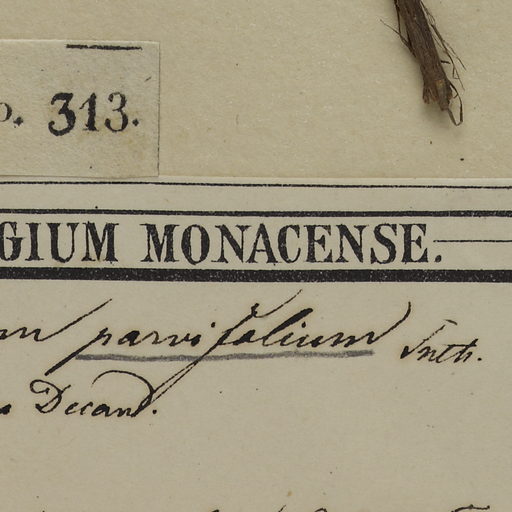 o. 313.
GIUM MONACENSE.
m parvifolium Snth.
a Decand.